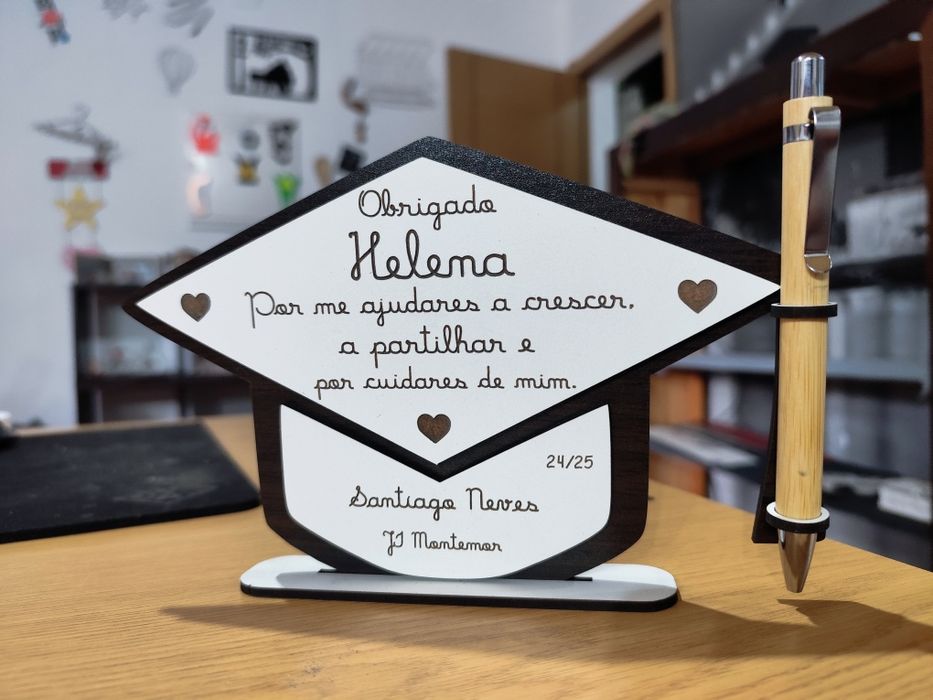 Obrigado
Helena
Por me ajudares a crescer,
a partilhar e
por cuidares de mim.
24/25
Santiago Neves
JI Montemor